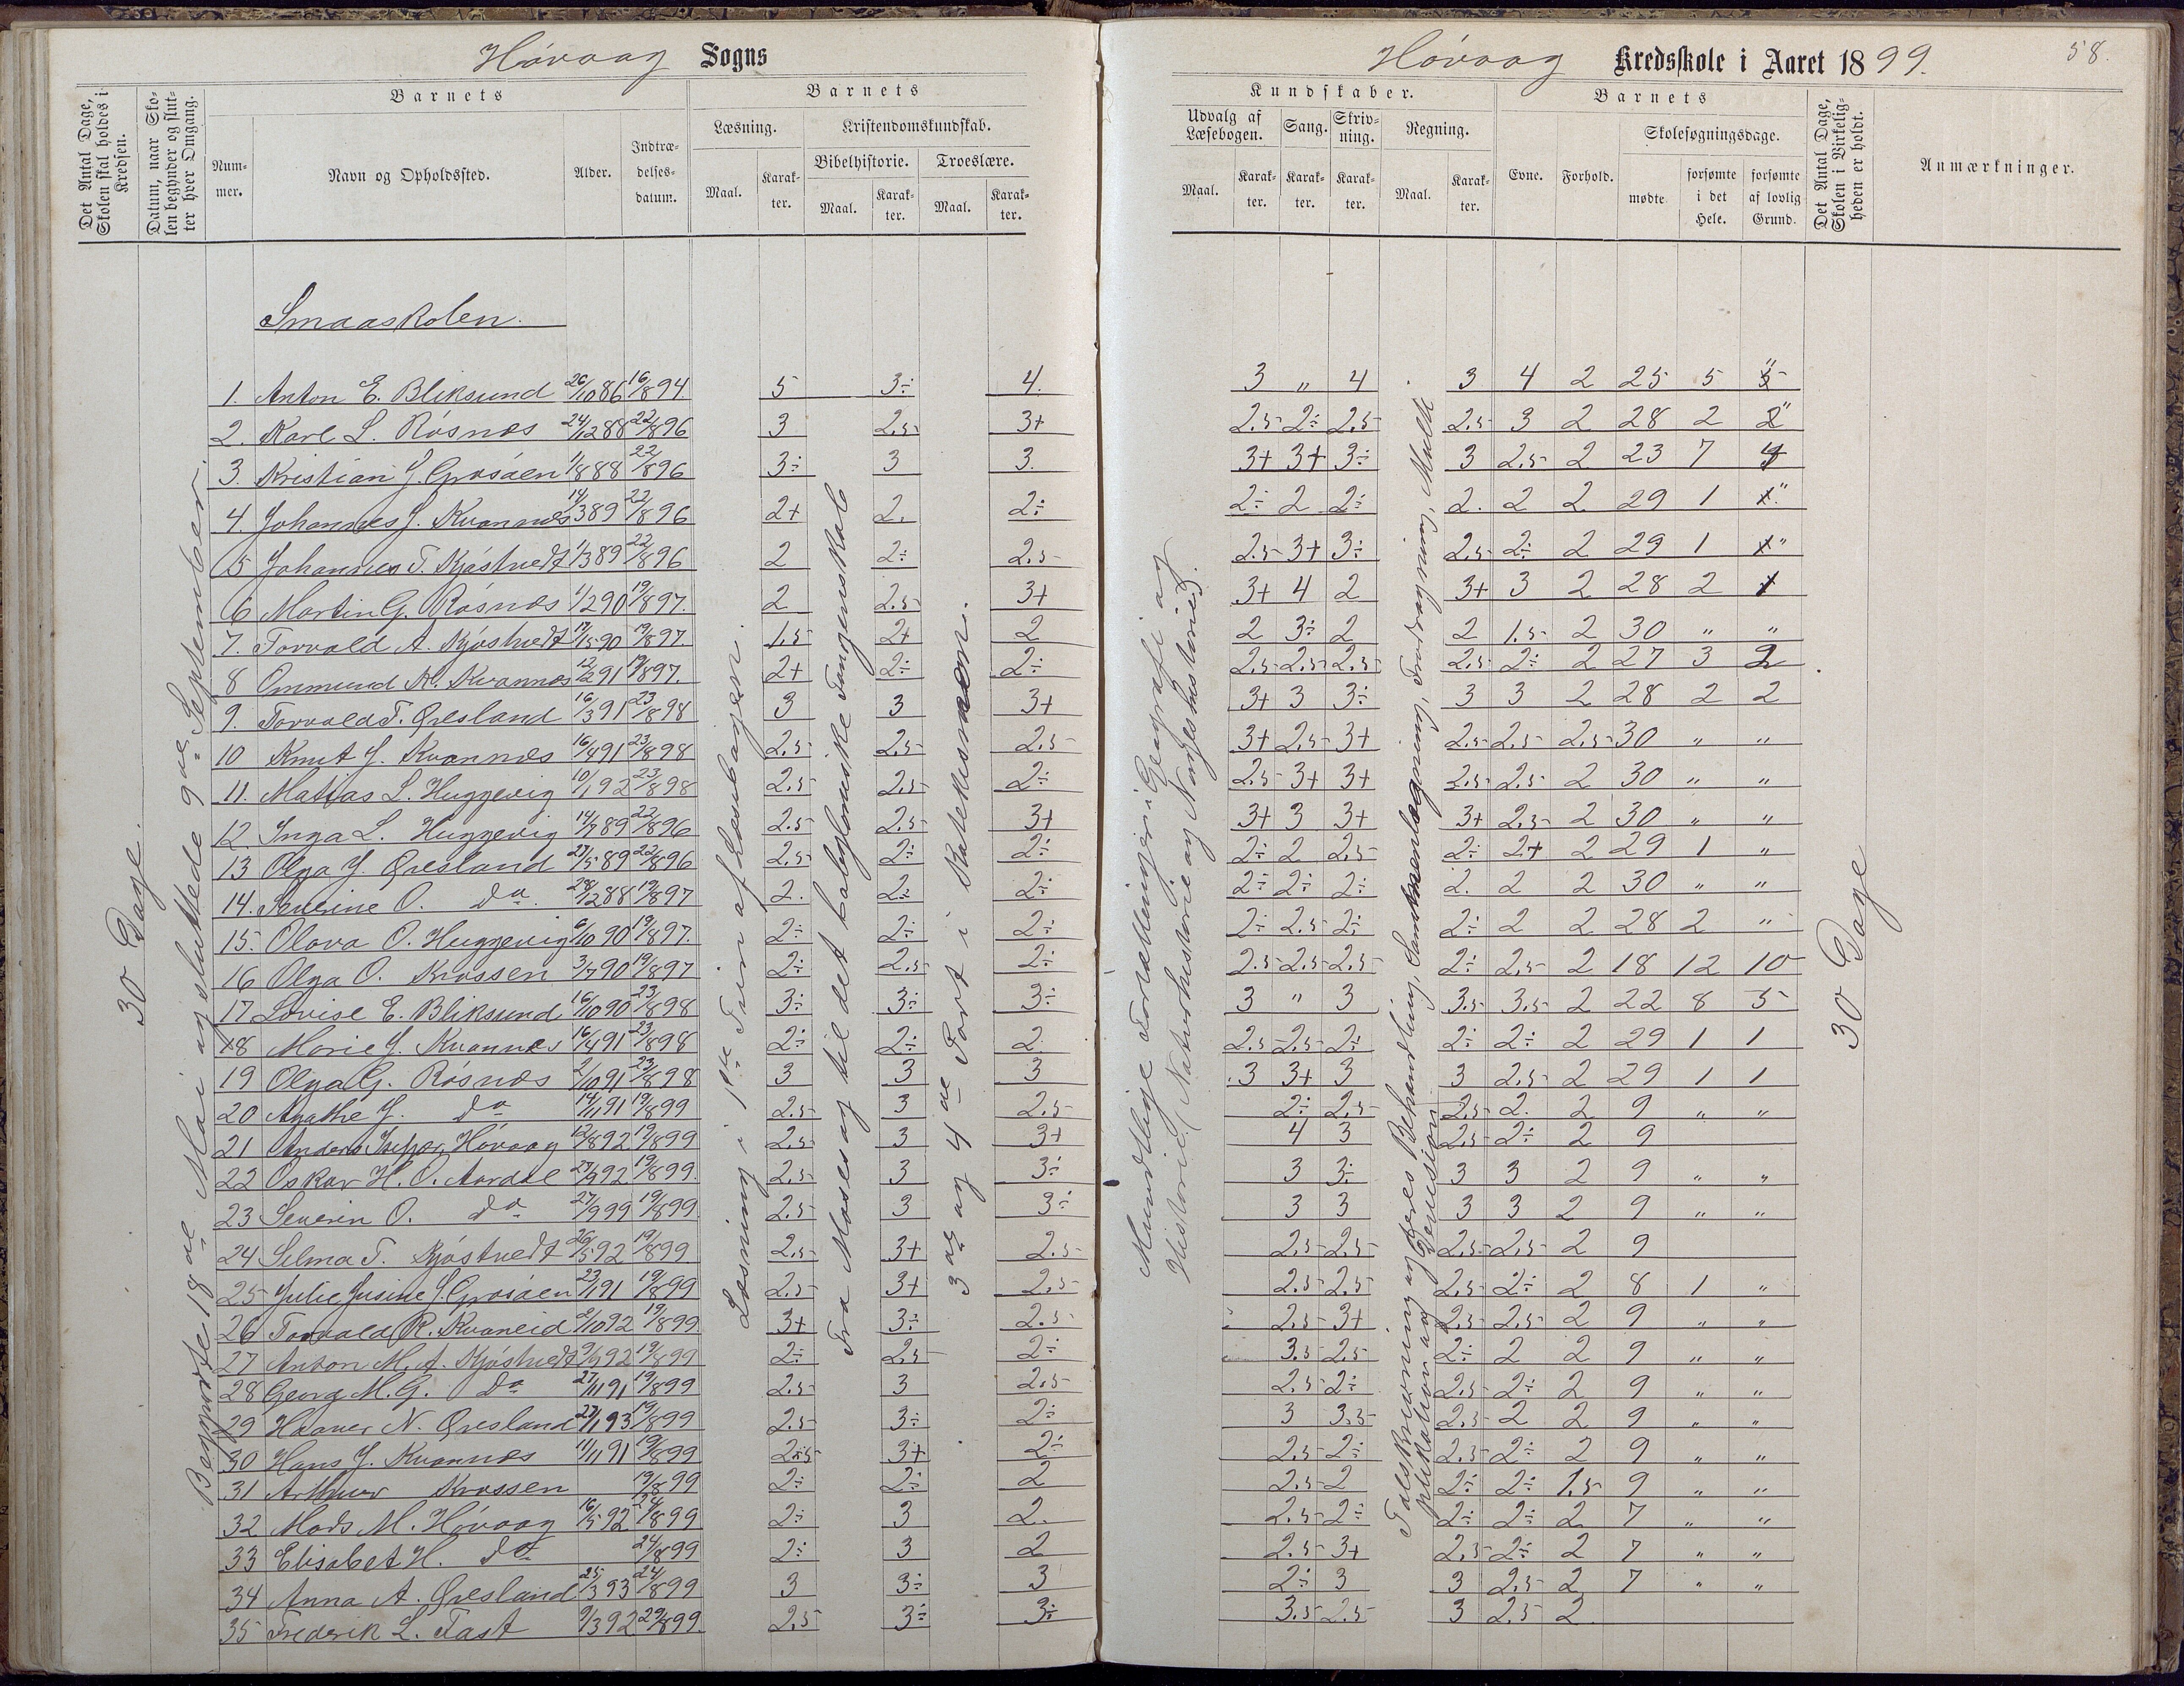 Høvaag Sogns
Det Antal Dage, Skolen skal holdes i Kredsen.
Datum, naar Skolen begynder og slutter hver Omgang.
Barnets
Nummer.
Navn og Opholdssted.
Alder.
Indtrædelsesdatum.
Barnets
Læsning.
Maal.
Karakter.
Kristendomskundskab.
Bibelhistorie.
Maal.
Karakter.
Troeslære.
Maal.
Karakter.
Høvaag Kredsskole i Aaret 1899.
58.
Kundskaber.
Udvalg af Læsebogen.
Maal.
Karakter.
Sang.
Karakter.
Skrivning.
Karakter.
Regning.
Maal.
Karakter.
Barnets
Evne.
Forhold.
Skolesøgningsdage.
mødte
forsømte i det Hele.
forsømte af lovlig Grund.
Det Antal Dage, Skolen i Virkeligheden er holdt.
Anmærkninger.
30 Dage.
Begyndte 18de Mai og sluttede 9de September.
Smaaskolen.
Læsning i 1ste Trin af Læsebogen.
Fra Moses og til det babyloniske Fangenskab
3de og 4de Part i Katekismen.
Mundtlige Fortællinger i Geografi og
Historie (Naturhistorie og Norgeshistorie).
Talskrivning og deres Behandling, Sammenlægning, Fradragning, Multi
plikation og Division
30 Dage
1. Anton E. Bliksund 26/10 86 16/8 94. 5 3÷ 4. 3 " 4 3 4 2 25 5 "
2. Karl L. Røsnæs 24/12 88 22/8 96 3 2.5 3+ 2.5 2÷ 2.5 2.5 3 2 28 2 "
3. Kristian J. Grosåen 1/8 88 22/8 96 3÷ 3 3. 3+ 3+ 3÷ 3 2.5 2 23 7 4
4. Johannes J. Kvannes 14/3 89 22/8 96 2+ 2. 2÷ 2÷ 2 2÷ 2. 2 2 29 1 "
5 Johannes T. Kjøstvedt 1/3 89 22/8 96 2 2÷ 2.5 2.5 3+ 3÷ 2.5 2÷ 2 29 1 "
6 Martin G. Røsnæs 1/2 90 19/8 97. 2 2.5 3+ 3+ 4 2 3+ 3 2 28 2 1
7. Torvald A. Kjøstvedt 17/5 90 19/8 97. 1.5 2+ 2 2 3÷ 2 2 1.5 2 30 " "
8 Ommund K. Kvannes 12/2 91 19/8 97. 2+ 2÷ 2÷ 2.5 2.5 2.5 2.5 2÷ 2 27 3 2
9. Torvald T. Øresland 16/3 91 23/8 98 3 3 3+ 3+ 3 3÷ 3 3 2 28 2 2
10 Knut J. Kvannes 16/4 91 23/8 98 2.5 2.5 2.5 3+ 2.5 3+ 2.5 2.5 2.5 30 " "
11. Matias L. Huggevig 10/1 92 23/8 98 2.5 2.5 2÷ 2.5 3+ 3+ 2.5 2.5 2 30 " "
12. Inga L. Huggevig 14/7 89 22/8 96 2.5 2.5 3+ 3+ 3 3+ 3+ 2.5 2 30 " "
13 Olga J. Øresland 27/5 89 22/8 96 2.5 2÷ 2÷ 2÷ 2 2.5 2÷ 2+ 2 29 1 "
14. Severine O. do. 28/12 88 19/8 97 2. 2÷ 2÷ 2÷ 2÷ 2÷ 2. 2 2 30 " "
15. Olava O. Huggevig 6/10 90 19/8 97. 2÷ 2÷ 2÷ 2÷ 2.5 2÷ 2÷ 2 2 28 2 "
16 Olga O. Krossen 3/7 90 19/8 97 2÷ 2.5 2÷ 2.5 2.5 2.5 2÷ 2.5 2 18 12 10
17 Lovise E. Bliksund 16/10 90 23/8 98 3÷ 3÷ 3÷ 3 " 3 3.5 3.5 2 22 8 5
18 Marie J. Kvannes 16/4 91 23/8 98 2÷ 2÷ 2. 2.5 2.5 2÷ 2÷ 2÷ 2 29 1 1
19 Olga G. Røsnæs 2/10 91 23/8 98 3 3 3 3 3+ 3 3 2.5 2 29 1 1
20 Agathe J. do 14/11 91 19/8 99 2.5 3 2.5 2÷ 2.5 2.5 2. 2 9 " "
21 Anders Høvaag 12/8 92 19/8 99 2.5 3 3+ 4 3 2.5 2÷ 2 9
22 Oskar H. O. Aardal 27/9 92 19/8 99. 2.5 3 3÷ 3 3÷ 3 3 2 9 " "
23 Severin O. do 27/9 99 19/8 99 2.5 3 3÷ 3 3 3 3 2 9 " "
24 Selma T. Kjøstvedt 26/5 92 19/8 99. 2.5 3+ 2.5 2.5 2.5 2.5 2.5 2 9
25 Julie Jusine J. Grosåen 23/1 91 19/8 99 2.5 3+ 2.5 2.5 2.5 2.5 2÷ 2 8 1 "
26 Torvald R. Kvaneid 2/10 92 19/8 99. 3+ 3÷ 2.5 2.5 3+ 2.5 2.5 2 9 " "
27 Anton M. A. Kjøstvedt 9/9 92 19/8 99 2÷ 2.5 2÷ 3.5 2.5 2÷ 2 2 9 " "
28 Georg M. G. do 27/11 91 19/8 99 2.5 3 2.5 2.5 2÷ 2.5 2÷ 2 9 " "
29 N. Øresland 27/1 93 19/8 99 2.5 3÷ 2÷ 3 3.5 2.5 2 2 9 " "
30 Hans J. Kvannes 11/11 91 19/8 99 2.5 3+ 2÷ 2.5 2÷ 2.5 2÷ 2 9 " "
31 Arthur Krossen 19/8 99 2÷ 2÷ 2 2.5 2 2÷ 2÷ 1.5 9 " "
32 Mads M. Høvaag 16/5 92 24/8 99 2÷ 3 2. 2.5 2÷ 2÷ 2÷ 2 7 " "
33 Elisabet H. do 24/8 99 2÷ 3 2 2.5 3+ 2.5 2÷ 2 7 " "
34 Anna A. Øresland 25/3 93 24/8 99 3 3÷ 3 2÷ 3 3 2.5 2 7 " "
35 Frederik L. Tast 9/3 92 29/8 99. 2.5 3÷ 3÷ 3.5 2.5 3 2.5 2